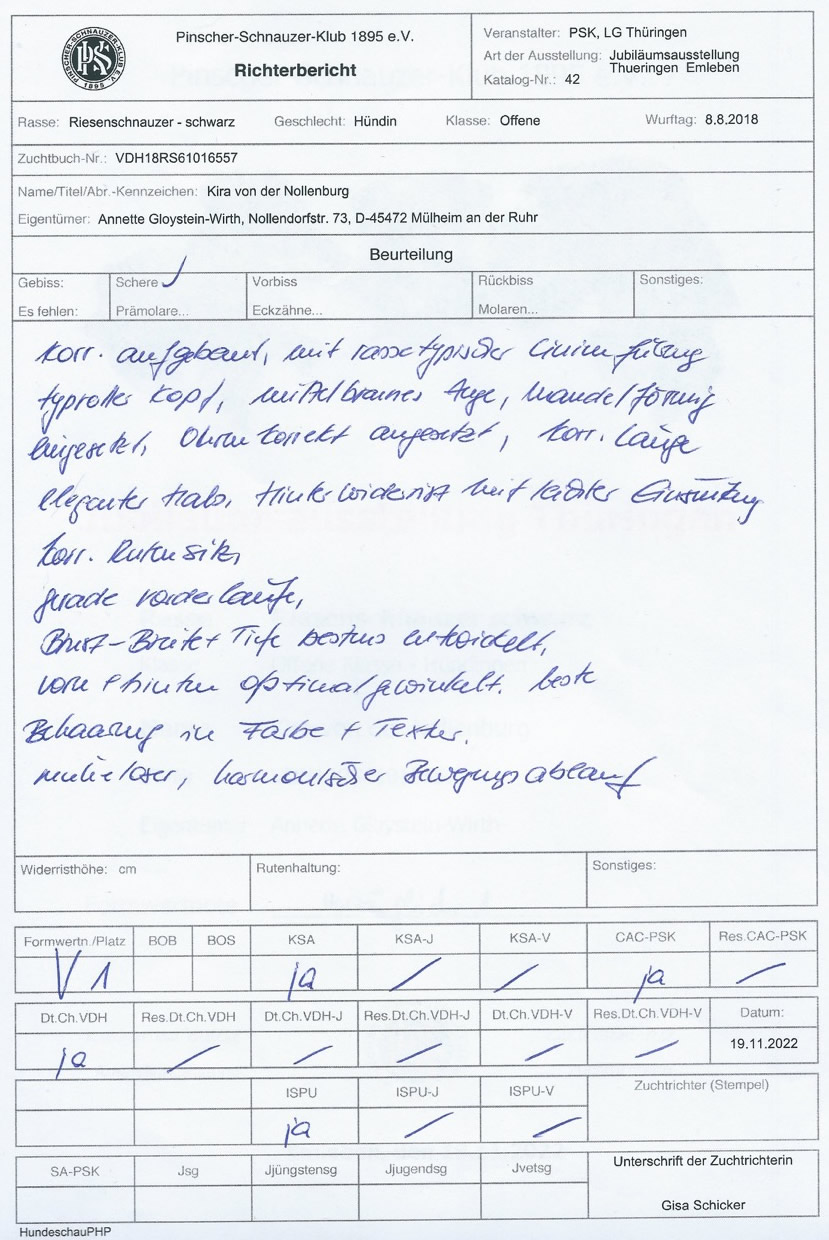 PINSCHER-SCHNAUZER-KLUB E.V.
PSK
1895
Pinscher-Schnauzer-Klub 1895 e.V.
Richterbericht
Veranstalter: PSK, LG Thüringen
Art der Ausstellung: Jubiläumsausstellung
Thueringen Emleben
Katalog-Nr.: 42
Rasse: Riesenschnauzer - schwarz Geschlecht: Hündin Klasse: Offene Wurftag: 8.8.2018
Zuchtbuch-Nr.: VDH18RS61016557
Name/Titel/Abr.-Kennzeichen: Kira von der Nollenburg
Eigentümer: Annette Gloystein-Wirth, Nollendorfstr. 73, D-45472 Mülheim an der Ruhr
Beurteilung
Gebiss: Schere Vorbiss Rückbiss Sonstiges:
Es fehlen: Prämolare... Eckzähne... Molaren...
korr. aufgebaut, mit rassetypischer Linienführung
typvoller Kopf, mittelbraunes Auge, mandelförmig
eingesetzt, Ohren korrekt angesetzt, korr. Länge
eleganter Hals, Hinter Widerrist mit leichter
korr. Rutensitz,
gerade Vorderläufe,
Brust-Breite + Tiefe bestens entwickelt,
vorn + hinten optimal gewinkelt. beste
Behaarung in Farbe + Textur.
müheloser, harmonischer Bewegungsablauf
Widerristhöhe: cm Rutenhaltung: Sonstiges:
Formwertn./Platz BOB BOS KSA KSA-J KSA-V CAC-PSK Res.CAC-PSK
V 1 ja / / ja /
Dt.Ch.VDH Res.Dt.Ch.VDH Dt.Ch.VDH-J Res.Dt.Ch.VDH-J Dt.Ch.VDH-V Res.Dt.Ch.VDH-V Datum:
ja / / / / / 19.11.2022
ISPU ISPU-J ISPU-V Zuchtrichter (Stempel)
ja / /
SA-PSK Jsg Jjüngstensg Jjugendsg Jvetsg Unterschrift der Zuchtrichterin
Gisa Schicker
HundeschauPHP